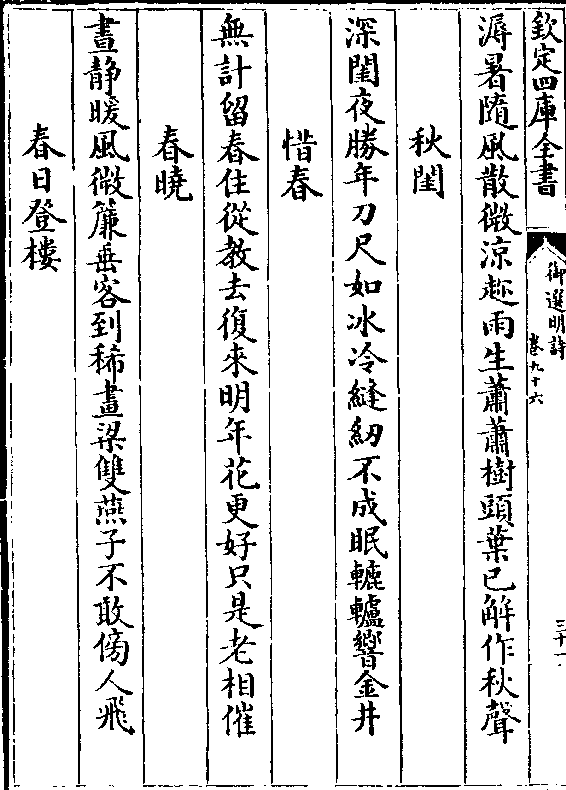 欽定四庫全書
御選明詩
卷九十六
三十一
溽暑隨風散微涼趂雨生蕭蕭樹頭葉已解作秋聲
秋閨
深閨夜勝年刀尺如冰冷縫紉不成眠轆轤響金井
惜春
無計留春住從教去復來明年花更好只是老相催
春曉
晝静暖風微簾垂客到稀畫梁雙燕子不敢傍人飛
春日登樓